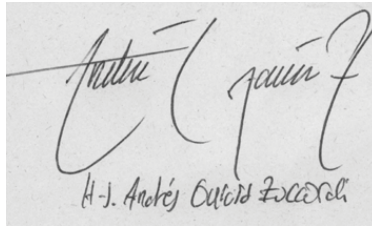 Andrés G García Z
H-J. Andrés García Zuccardi